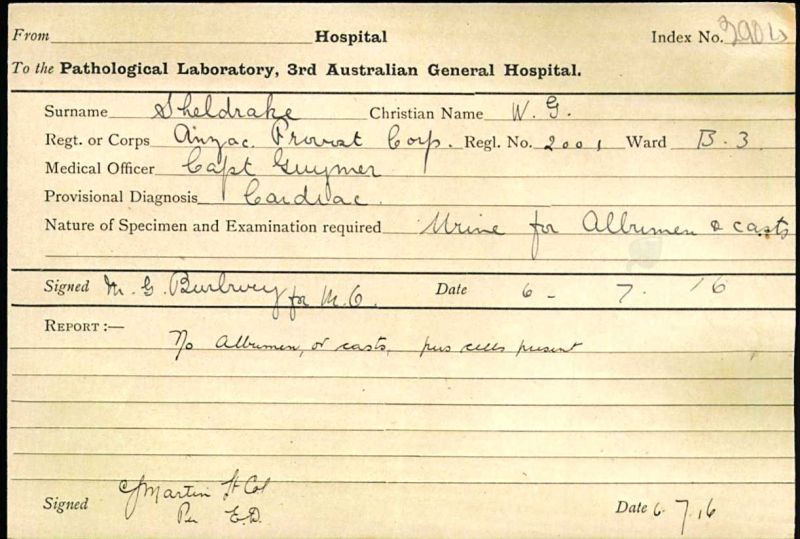 From Hospital Index No. 2904
To the Pathological Laboratory, 3rd Australian General Hospital.
Surname Sheldrake Christian Name W. G.
Regt. or Corps Anzac. Provost Corp. Regl. No. 2001 Ward B. 3.
Medical Officer Capt Guymer
Provisional Diagnosis Cardiac.
Nature of Specimen and Examination required Urine for Albumen & casts
Signed M. G. Burbury for M.O. Date 6 - 7. 16
REPORT :—
No Albumen, or casts, pus cells present
Signed CJMartin Lt Col Date 6. 7.16
Per E.D.